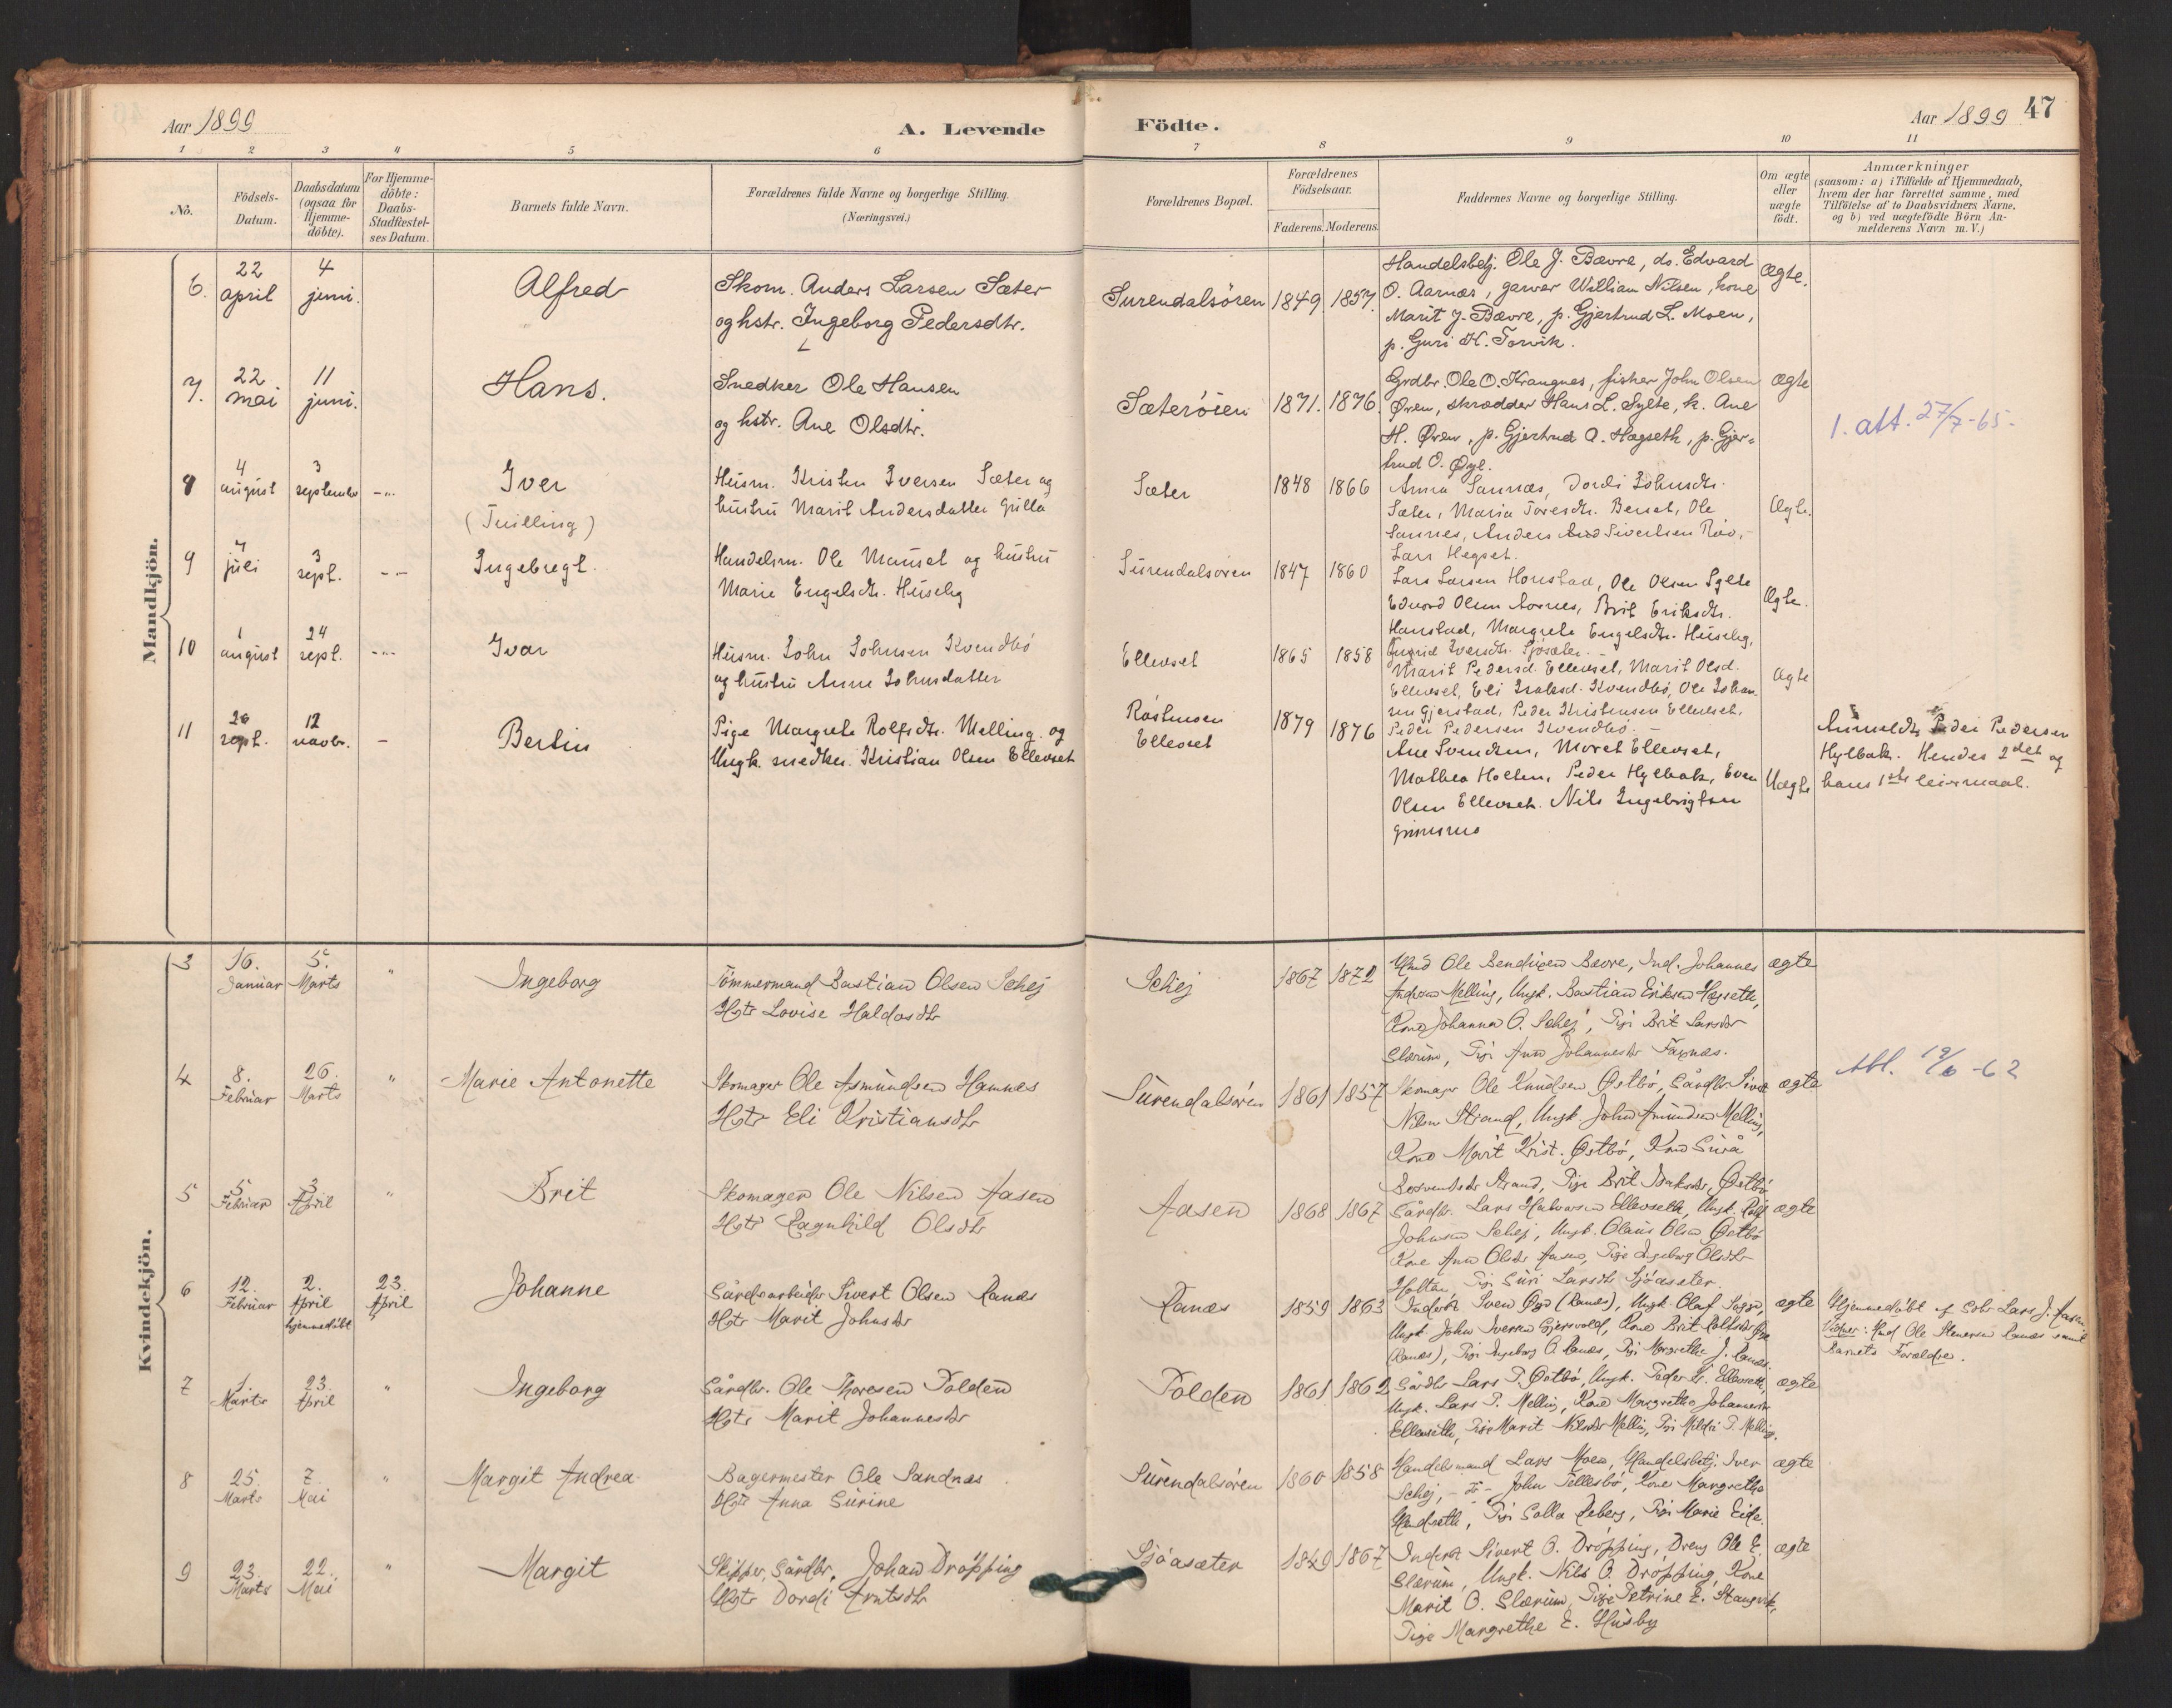 Aar 1899
A. Levende
Födte.
Aar 1899
47
1 2 3 4 5 6 7 8 9 10 11
No.
Födsels-
Datum.
Daabsdatum
(ogsaa for
Hjemme-
döbte).
For Hjemme-
döbte:
Daabs-
Stadfæstel-
ses Datum.
Barnets fulde Navn.
Forældrenes fulde Navne og borgerlige Stilling.
(Næringsvei.)
Forældrenes Bopæl.
Forældrenes
Födselsaar.
Faderens. Moderens.
Faddernes Navne og borgerlige Stilling.
Om ægte
eller
uægte
födt.
Anmærkninger
(saasom: a) i Tilfælde af Hjemmedaab,
hvem der har forrettet samme, med
Tilföielse af to Daabsvidners Navne,
og b) ved uægtefödte Börn An-
melderens Navn m. V.)
Mandkjön.
6.
22
april
4
juni.
Alfred
Skom. Anders Larsen Sæter
og hstr. Ingeborg Pedersdtr.
Surendalsören
1849
1857.
Handelsbetj. Ole J. Bævre, do. Edvard
O. Aarnæs, garver William Nilsen, kone
Marit J. Bævre, p. Gjertrud L. Moen,
p. Guri H. Torvik.
Ægte.
7.
22
mai
11
juni.
Hans.
Snedker Ole Hansen
og hstr. Ane Olsdtr.
Sæterøien
1871.
1876.
Grdbr. Ole O. Krangnes, fisker John Olsen
Øren, skrædder Hans L. Sylte, k. Ane
H. Øren, p. Gjertrud A. Hægseth, p. Gjer-
trud O. Øye.
Ægte
1. att. 27/7-65.
8
4
august
3
september
Iver
(Tvilling)
Husm. Kristen Iversen Sæter og
hustru Marit Andersdatter Grilla
Sæter
1848
1866
Anna Sannæs, Dordi Johnsdtr.
Sæter, Maria Toresdtr. Berset, Ole
Sannes, Anders Sivertsen Röv,
Lars Hegset.
Ægte.
9
7
juli
3
sept.
Ingebregt.
Handelsm. Ole Mauset og hustru
Marie Engelsdtr. Huseby
Surendalsören
1847
1860
Lars Larsen Honstad, Ole Olsen Sylte
Edvard Olsen Aarnes, Brit Eriksdtr.
Honstad, Margrete Engelsdtr. Huseby,
Ingrid Iversdtr. Sjösæter.
Ægte.
10
1
august
24
sept.
Ivar
Husm. John Johnsen Kvendbö
og hustru Anne Johnsdatter
Ellevset
1865
1858
Marit Pedersd. Ellevset, Marit Olsd.
Ellevset, Eli Isaksd. Kvendbö, Ole Johan
sen Gjerstad, Peder Kristensen Ellevset,
Peder Pedersen Kvendbö.
Ægte
11
20
sept.
12
novbr.
Bertin
Pige Margrete Rolfsdtr. Melling og
Ungk. snedker. Kristian Olsen Ellevset
Ellevset
1879
1876
Ane Svendsen, Moret Ellevset,
Mathea Holten, Peder Hylbak, Even
Olsen Ellevset. Nils Ingebrigtsen
Uægte
Anmeldt: Peder Pedersen
Hylbak. Hendes 2det og
hans 1ste leiermaal.
Kvindekjön.
3
16.
Januar
5.
Marts
"
Ingeborg
Tömmermand Bastian Olsen Schej
Hstr Lovise Haldosdtr
Schej
1867
1872
Ole Bendixen Bævre, Ind. Johannes
Andersen Melling, Ungk. Bastian Eriksen Hægseth,
Kone Johanna O. Schej, Pige Brit Larsdtr
Glærum, Pige Ane Johannesdtr Faxnæs.
ægte
4
8.
Februar
26.
Marts
"
Marie Antonette
Skomager Ole Asmundsen Hamnes
Hstr Eli Kristiansdtr
Surendalsören
1861
1857
Skomager Ole Knudsen Østbö, Gårdbr Sivert
Nilsen Strand, Ungk. John Amundsen Melling,
Kone Marit Krist. Østbö, Kone
Strand, Pige Brit Isaksdtr Østbö
ægte
Att. 19/6-62
5
5
Februar
3
April
"
Brit
Skomager Ole Nilsen Aasen
Hstr Ragnhild Olsdtr
Aasen
1868
1867
Gårdbr. Lars Halvorsen Ellevseth, Ungk. Rolf
Johnsen Schej, Ungk. Olaus Olsen Østbö
Kone Ane Olsdtr Aasen, Pige Ingeborg Olsdtr
Holten, Pige Guri Larsdtr Sjöasæter.
ægte
6
12.
Februar
2.
April
hjemmedöbt
23.
April
Johanne
Gårdsarbeider Sivert Olsen Ranæs
Hstr Marit Johnsdtr
Ranæs
1859
1863
Inderst Sven Øye (Ranæs), Ungk. Olaf Sogge,
Ungk. John Iversen Gjersvold, Kone Brit Rolfsdtr Øye
(Ranæs), Pige Ingeborg O. Ranæs, Pige Margrethe J. Ranæs.
ægte
Hjemmedöbt af Gdbr. Lars J. Aasen
Vidner: Ole Stenersen Ranæs samt
Barnets Forældre.
7
1.
Marts
23.
April
"
Ingeborg
Gårdbr. Ole Thoresen Tolden
Hstr Marit Johannesdtr
Tolden
1861
1862
Gårdbr Lars P. Østbö, Ungk. Peder K. Ellevseth,
Ungk. Lars P. Melling, Kone Margrethe Johannesdtr
Ellevseth, Pige Marit Nilsdtr Melling, Pige Mildri P. Melling.
ægte
8
25.
Marts
7.
Mai
"
Margit Andrea
Bagermester Ole Sandnæs
Hstr Anna Surine
Surendalsören
1860
1858
Handelsmand Lars Moen, Handelsbetj. Iver
Schej, John Tellesbö, Kone Margrethe
Pige Marie Eide.
ægte
9
23.
Marts
22.
Mai
"
Margit
Skipper, Gårdbr, Johan Dröpping
Hstr Dordi Arntsdtr
Sjöasæter
1849
1867
Inderst Sivert O. Dröpping, Dreng Ole E.
Glærum, Ungk. Nils O. Dröpping, Kone
Marit O. Glærum, Pige Petrine E. Stangvik,
Pige Margrethe E. Husby
ægte